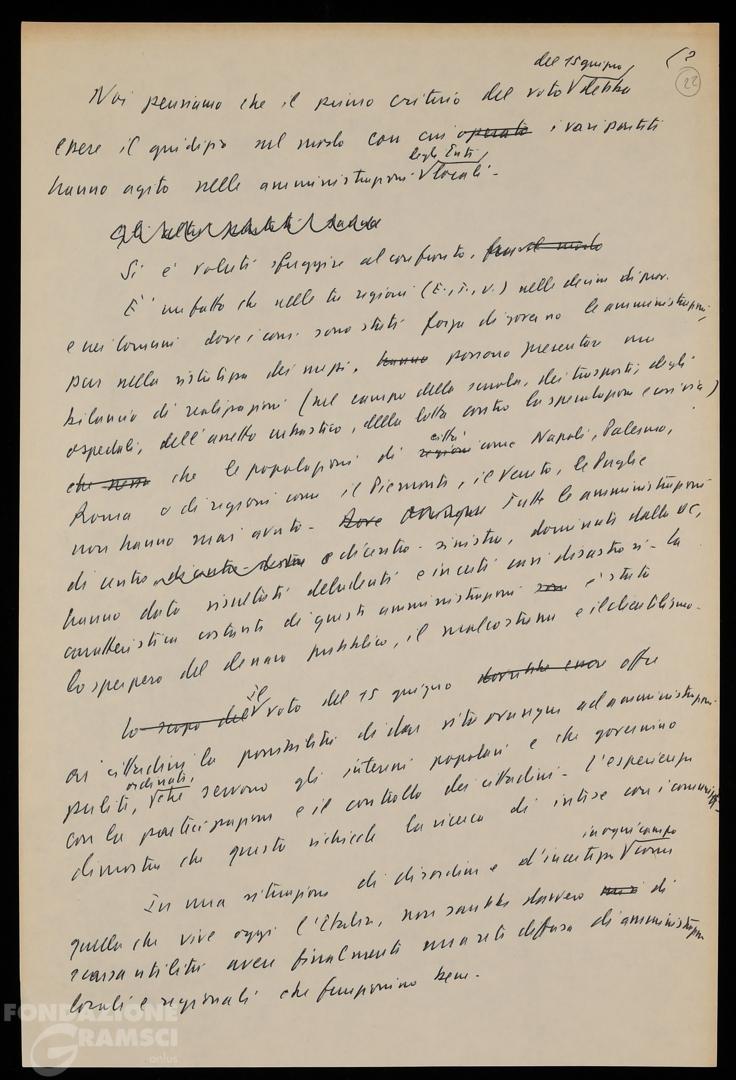 (2
22
del 15 giugno
Noi pensiamo che il primo criterio del voto debba
essere il giudizio sul modo con cui operato i vari partiti
degli Enti
hanno agito nelle amministrazioni locali -
Gli altri
Si è voluti sfuggire al confronto,
E' un fatto che nelle tre regioni (E., T., U.) nelle decine di prov.
e nei Comuni dove i com. sono stati forza di governo le amministrazioni,
pur nella ristrettezza dei mezzi, hanno possono presentare un
bilancio di realizzazioni (nel campo della scuola, dei trasporti, degli
ospedali, dell'assetto urbanistico, della lotta contro la speculazione e così via)
che le popolazioni di regioni come Napoli, Palermo,
città
Roma o di regioni come il Piemonte, il Veneto, le Puglie
non hanno mai avuto - Dove dovunque Tutte le amministrazioni
di centro di centro-destra e di centro-sinistra, dominate dalla DC,
hanno dato risultati deludenti e in certi casi disastrosi - La
caratteristica costante di queste amministrazioni è stata
lo sperpero del denaro pubblico, il malcostume e il clientelismo -
Lo scopo del voto del 15 giugno dovrebbe essere offre
il
ai cittadini la possibilità di dar vita ovunque ad amministrazioni
ordinate,
pulite, che servono gli interessi popolari e che governino
con la partecipazione e il controllo dei cittadini - L'esperienza
dimostra che questo richiede la ricerca di intese con i comunisti -
in ogni campo
In una situazione di disordine e d'incertezza come
quella che vive oggi l'Italia, non sarebbe davvero di
scarsa utilità avere finalmente una rete diffusa di amministrazioni
locali e regionali che funzionino bene -
FONDAZIONE
GRAMSCI
onlus